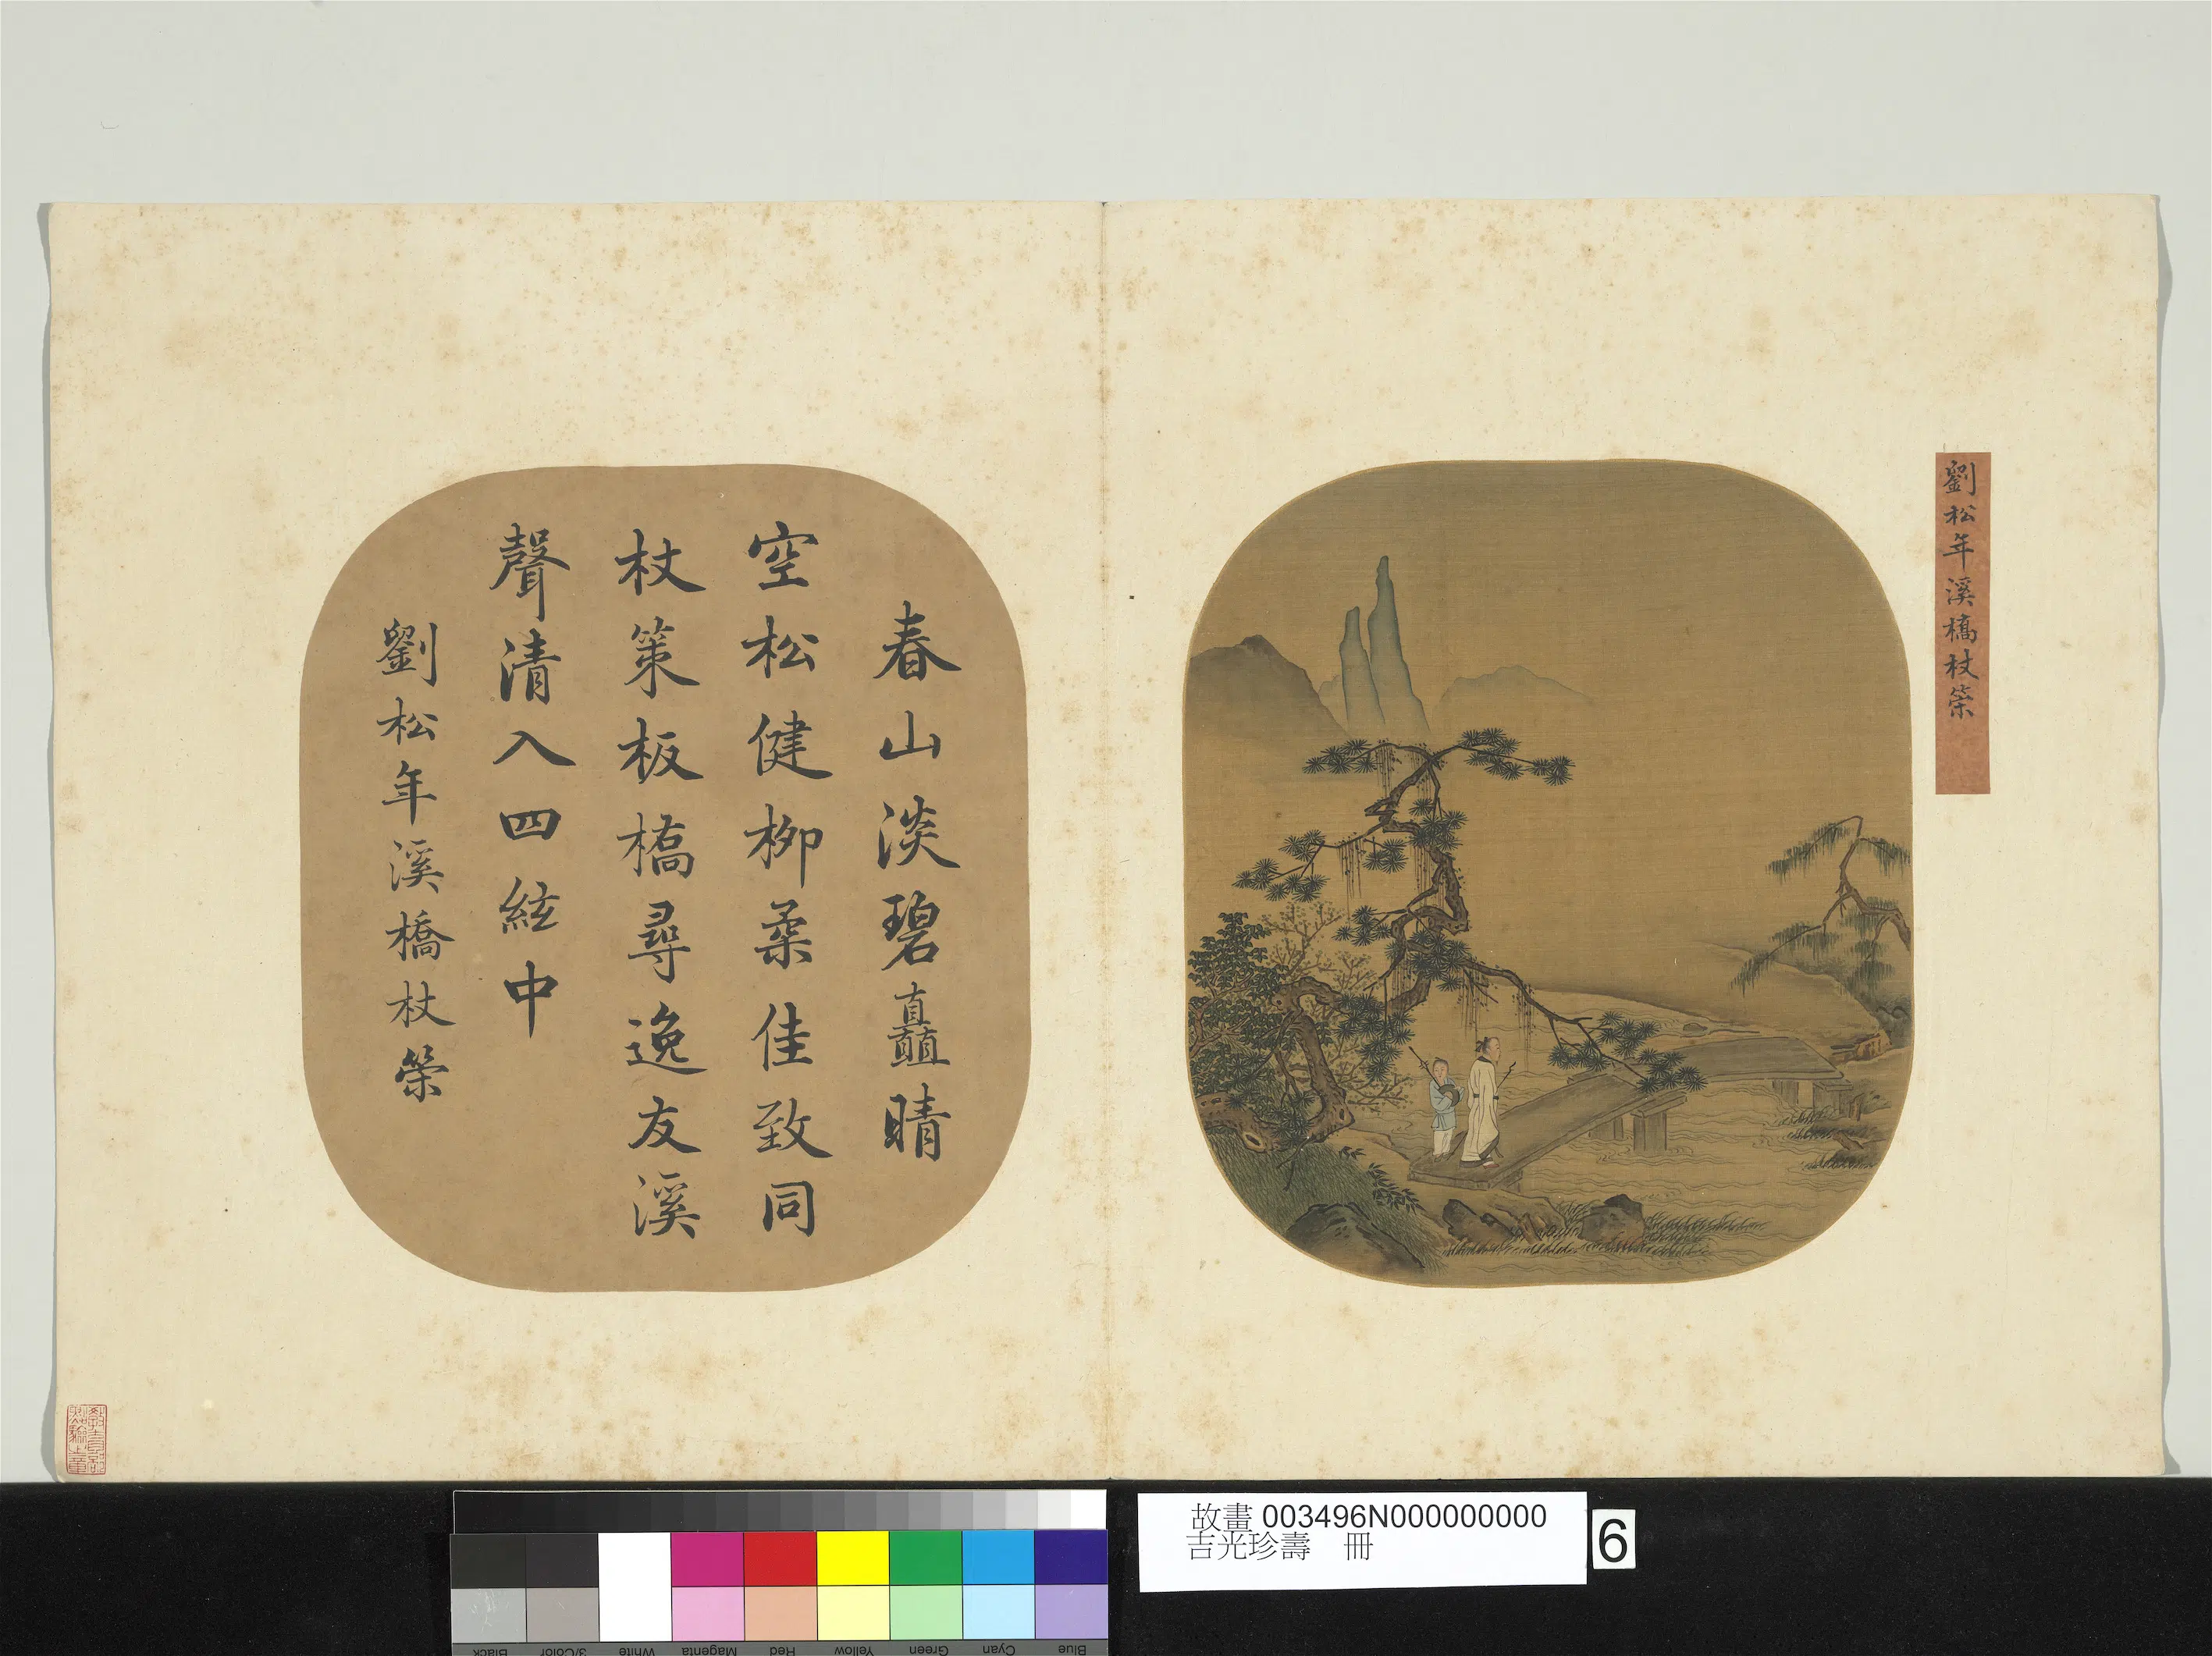 劉松年溪橋杖䇿
春山淡碧矗晴
空松健柳柔佳致同
杖策板橋尋逸友溪
聲清入四絃中
劉松年溪橋杖䇿
故畫 003496N000000000
吉光珍壽 冊
6
Black 3/Color White Magenta Red Yellow Green Cyan Blue